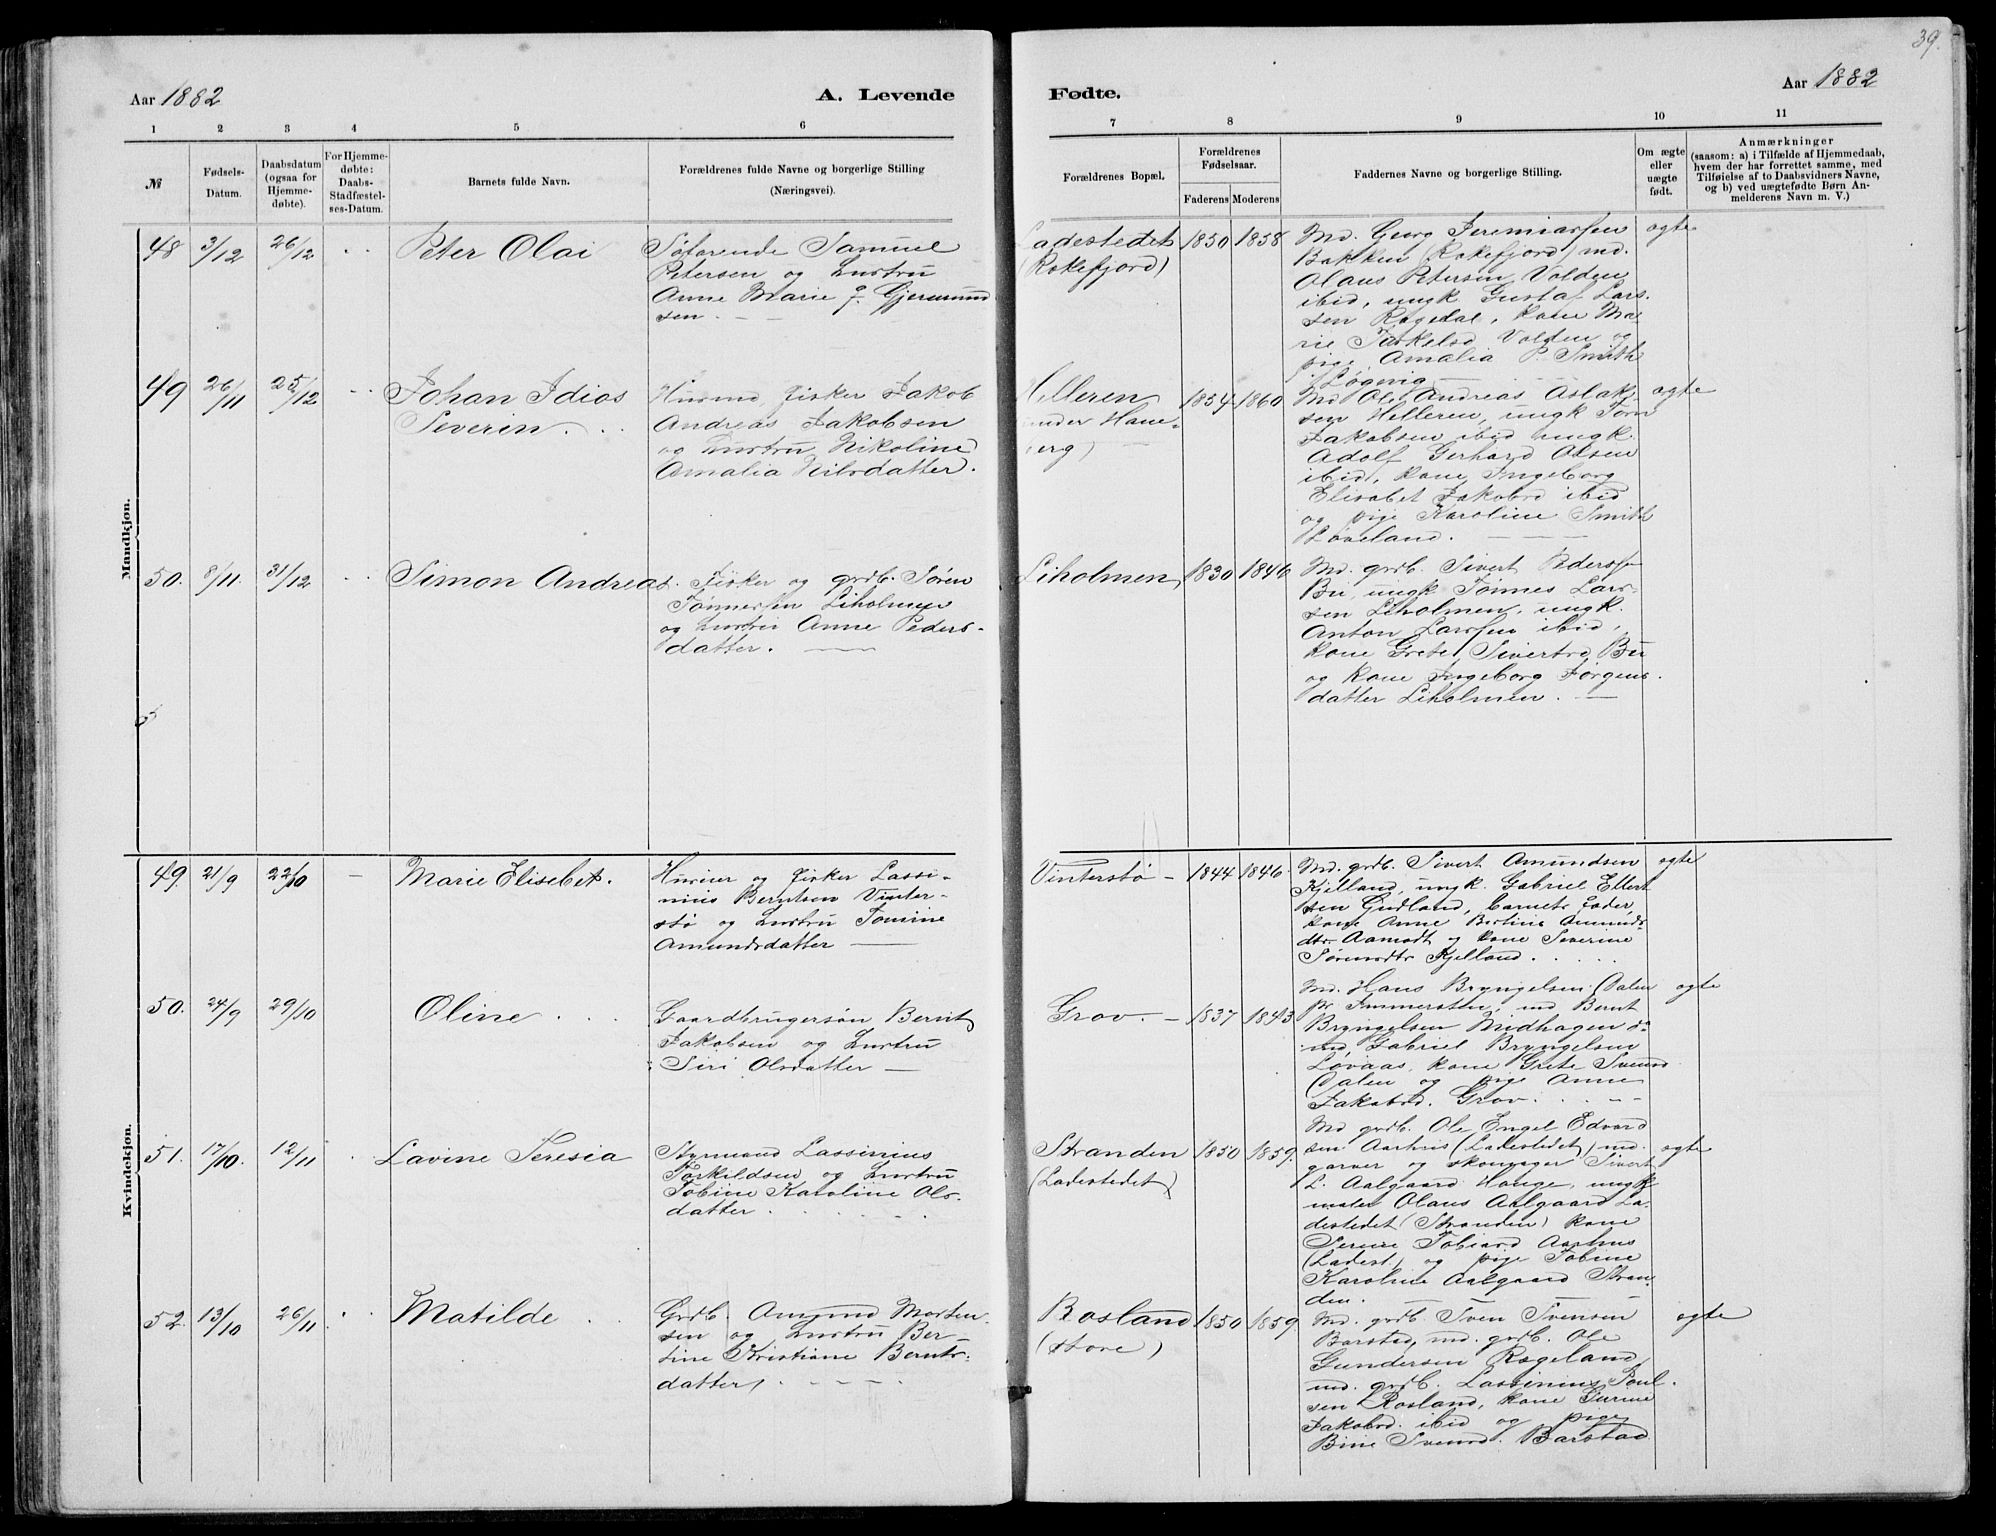 39.
Aar 1882
A. Levende
Fødte.
Aar 1882
1 2 3 4 5 6
7 8 9 10 11
№
Fødsels-
Datum.
Daabsdatum
(ogsaa for
Hjemme-
døbte).
For Hjemme-
døbte:
Daabs-
Stadfæstel-
ses-Datum.
Barnets fulde Navn.
Forældrenes fulde Navne og borgerlige Stilling
(Næringsvei).
Forældrenes Bopæl.
Forældrenes
Fødselsaar.
Faderens
Moderens
Faddernes Navne og borgerlige Stilling.
Om ægte
eller
uægte
født.
Anmærkninger
(saasom: a) i Tilfælde af Hjemmedaab,
hvem der har forrettet samme, med
Tilføielse af to Daabsvidners Navne,
og b) ved uægtefødte Børn An-
melderens Navn m. V.)
Mandkjøn.
48 3/12 26/12
Peter Olai
Søfarende Samuel
Petersen og Hustru
Anne Marie f. Gjermund
sen.
Ladestedet
(Rekefjord)
1850 1858
Md. Georg Jeremiassen
Bakken (Rekefjord) md.
Olaus Petersen Volden
ibid, ungk Gustaf Lars-
sen Regedal, kone Ma-
rie Torkelsd Volden og
pige Amalia P. Smith
Løgevig
ægte
49 26/11 25/12
Johan Idios
Severin.
Husmd, fisker Jakob
Andreas Jakobsen
og Hustru Nikoline
Amalia Nilsdatter.
Helleren
under Haue-
berg)
1854 1860
Md Ole Andreas Aslak-
sen Helleren, ungk Tørn
Jakobsen ibid ungk.
Adolf Gerhard Olsen
ibid, kone Ingeborg
Elisabet Jakobsd ibid
og pige Karoline Smith
Løveland.
ægte
50. 8/11. 31/12
Simon Andreas.
Fisker og grdb. Søren
Tønnessen Liholmen
og Hustru Anne Peders-
datter.
Liholmen
1830 1846
Md. grdb. Sivert Pederssen
Bu, ungk Tønnes Lars-
sen Liholmen, ungk.
Anton Larssen ibid,
kone Grete Sivertsd Bu
og kone Ingeborg Jørgens-
datter Liholmen.
5
Kvindekjøn.
49. 21/9 22/10
Marie Elisebet.
Husmd og fisker Lassi-
nius Berntsen Vinter-
stø og Hustru Tomine
Amundsdatter
Vinterstø
1844 1846
Md. grdb. Sivert Amundsen
Kjelland, ungk. Gabriel Ellert
sen Gudland, barnets fader,
kone Anne Bertine Amunds-
dtr Aamodt og kone Severine
Kjelland.
ægte
50. 24/9 29/10
Oline
Gaardbrugersøn Bernt
Jakobsen og Hustru
Siri Olsdatter
Grov.
1837 1843
Md. Hans Bryngelsen Dalen
pr. Immerstein, md Bernt
Bryngelsen Midhagen
md, Gabriel Bryngelsen
Løvaas, kone Grete Svensd
Dalen og pige Anne
Jakobsd. Grov.
ægte
51. 17/10. 12/11
Lavine Teresia
Styrmand Lassinius
Torkildsen og Hustru
Tobine Karoline Ols-
datter
Stranden
(Ladestedet)
1850 1859.
Md grdb. Ole Engel Edvard
sen Aarhus (Ladestedet) md.
garver og skomager Sivert
L. Aalgaard Hauge, ungk
maler Olaus Aalgaard La-
destedet (Stranden) kone
Serine Tobiasd Aarhus
(Ladest.) og pige Tobine
Karoline Aalgaard Stran-
den.
ægte
52. 13/10 26/11
Matilde
Grdb. Amund Morten-
sen og Hustru Ber-
tine Kristiane Bernts-
datter
Rosland
(store)
1850 1859.
Md. grdb. Sven Svensen
Barstad, md. grdb. Ole
Gundersen Rægeland,
md. grdb. Lassinius Poul-
sen Rosland, kone Gurine
Jakobsd. ibid og pige
Bine Svensd. Barstad
ægte